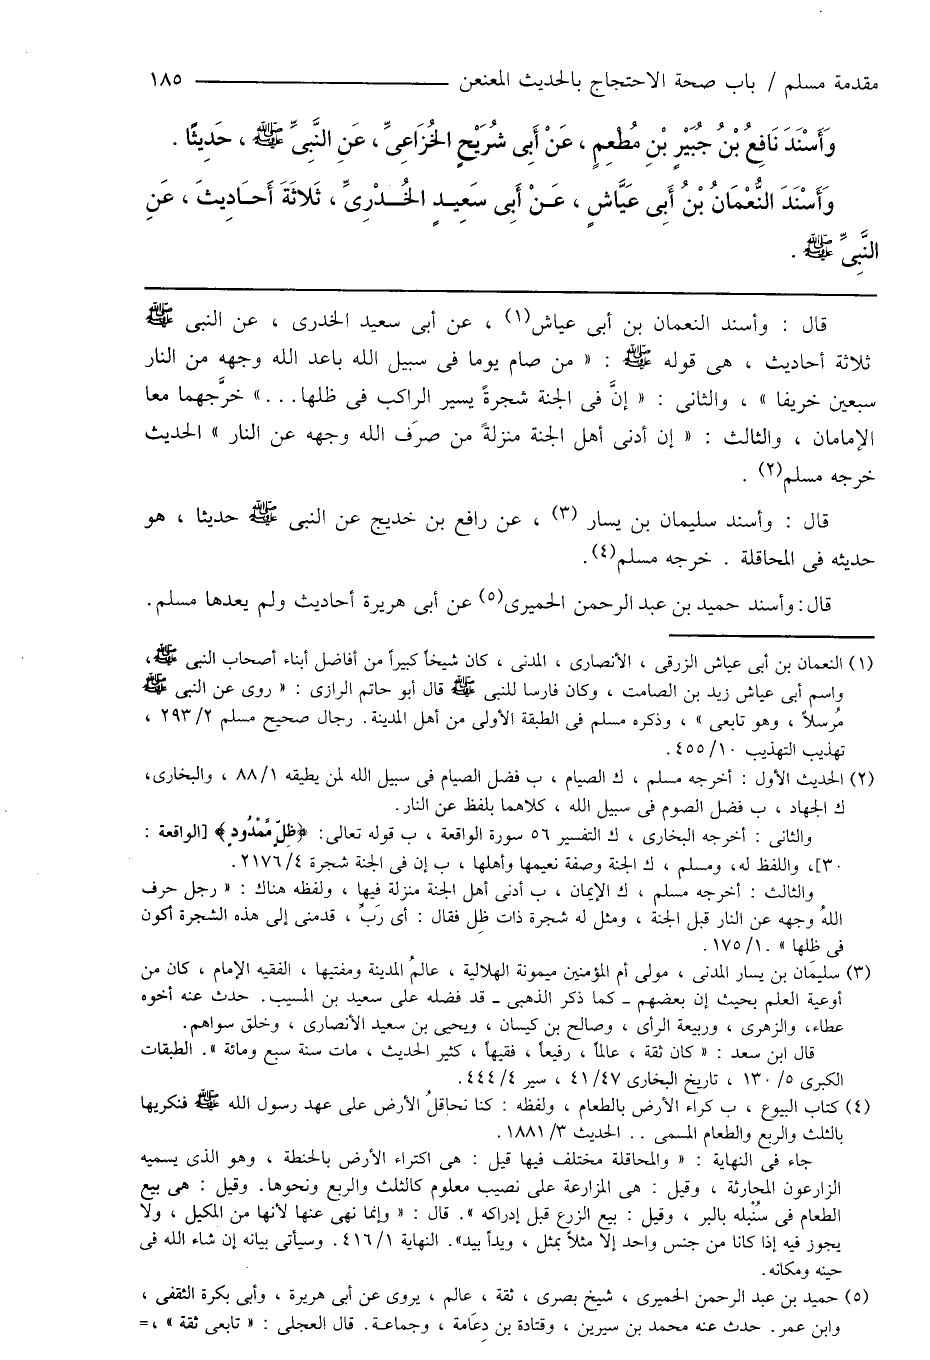 مقدمة مسلم / باب صحة الاحتجاج بالحديث المعنعن ــــــــــــــــــ ١٨٥
وَأَسْنَدَ نَافِعُ بْنُ جُبَيْرِ بْنِ مُطْعِمٍ ، عَنْ أَبِى شُرَيْحٍ الخُزَاعِىِّ ، عَنِ النَّبِىِّ ﷺ ، حَدِيثًا .
وَأَسْنَدَ النُّعْمَانُ بْنُ أَبِى عَيَّاشٍ ، عَنْ أَبِى سَعِيدٍ الخُدْرِىِّ ، ثَلَاثَةَ أَحَادِيثَ ، عَنِ
النَّبِىِّ ﷺ .
قال : وأسند النعمان بن أبى عياش(١) ، عن أبى سعيد الخدرى ، عن النبى ﷺ
ثلاثة أحاديث ، هى قوله ﷺ : « من صام يوما فى سبيل الله باعد الله وجهه من النار
سبعين خريفا » ، والثانى : « إنَّ فى الجنة شجرةً يسير الراكب فى ظلها . . .» خرَّجهما معا
الإمامان ، والثالث : « إن أدنى أهل الجنة منزلةً من صرَف الله وجهه عن النار » الحديث
خرجه مسلم(٢) .
قال : وأسند سليمان بن يسار (٣) ، عن رافع بن خديج عن النبى ﷺ حديثا ، هو
حديثه فى المحاقلة . خرجه مسلم(٤).
قال : وأسند حميد بن عبد الرحمن الحميرى(٥) عن أبى هريرة أحاديث ولم يعدها مسلم .
(١) النعمان بن أبى عياش الزرقى ، الأنصارى ، المدنى ، كان شيخاً كبيراً من أفاضل أبناء أصحاب النبى ﷺ،
واسم أبى عياش زيد بن الصامت ، وكان فارسا للنبى ﷺ قال أبو حاتم الرازى : « روى عن النبى ﷺ
مُرسلاً ، وهو تابعى » ، وذكره مسلم فى الطبقة الأولى من أهل المدينة . رجال صحيح مسلم ٢/ ٢٩٣ ،
تهذيب التهذيب ١٠/ ٤٥٥ .
(٢) الحديث الأول : أخرجه مسلم ، ك الصيام ، ب فضل الصيام فى سبيل الله لمن يطيقه ١/ ٨٨ ، والبخارى،
ك الجهاد ، ب فضل الصوم فى سبيل الله ، كلاهما بلفظ عن النار .
والثانى : أخرجه البخارى ، ك التفسير ٥٦ سورة الواقعة ، ب قوله تعالى: ﴿ظِلٍّ مَّمْدُودٍ﴾ [الواقعة :
٣٠]، واللفظ له، ومسلم ، ك الجنة وصفة نعيمها وأهلها ، ب إن فى الجنة شجرة ٤/ ٢١٧٦ .
والثالث : أخرجه مسلم ، ك الإيمان ، ب أدنى أهل الجنة منزلة فيها ، ولفظه هناك : « رجل حرف
اللهُ وجهه عن النار قبل الجنة ، ومثل له شجرة ذات ظل فقال : أى رَبِّ ، قدمنى إلى هذه الشجرة أكون
فى ظلها » . ١/ ١٧٥ .
(٣) سليمان بن يسار المدنى ، مولى أم المؤمنين ميمونة الهلالية ، عالمُ المدينة ومفتيها ، الفقيه الإمام ، كان من
أوعية العلم بحيث إن بعضهم ـ كما ذكر الذهبى ـ قد فضله على سعيد بن المسيب . حدث عنه أخوه
عطاء، والزهرى ، وربيعة الرأى ، وصالح بن كيسان ، ويحيى بن سعيد الأنصارى ، وخلق سواهم .
قال ابن سعد : « كان ثقة ، عالماً ، رفيعاً ، فقيهاً ، كثير الحديث ، مات سنة سبع ومائة » . الطبقات
الكبرى ٥/ ١٣٠ ، تاريخ البخارى ٤٧/ ٤١ ، سير ٤/ ٤٤٤ .
(٤) كتاب البيوع ، ب كراء الأرض بالطعام ، ولفظه : كنا نحاقلُ الأرض على عهد رسول الله ﷺ فنكريها
بالثلث والربع والطعام المسمى . . الحديث ٣/ ١٨٨١ .
جاء فى النهاية : « والمحاقلة مختلف فيها قيل : هى اكتراء الأرض بالحنطة ، وهو الذى يسميه
الزارعون المحارثة ، وقيل : هى المزارعة على نصيب معلوم كالثلث والربع ونحوها . وقيل : هى بيع
الطعام فى سُنْبله بالبر ، وقيل : بيع الزرع قبل إدراكه » . قال : « وإنما نهى عنها لأنها من المكيل ، ولا
يجوز فيه إذا كانا من جنس واحد إلا مثلاً بمثل ، ويداً بيد» . النهاية ١/ ٤١٦ . وسيأتى بيانه إن شاء الله فى
حينه ومكانه .
(٥) حميد بن عبد الرحمن الحميرى ، شيخ بصرى ، ثقة ، عالم ، يروى عن أبى هريرة ، وأبى بكرة الثقفى ،
وابن عمر . حدث عنه محمد بن سيرين ، وقتادة بن دعَامة ، وجماعة . قال العجلى : « تابعى ثقة » ،=